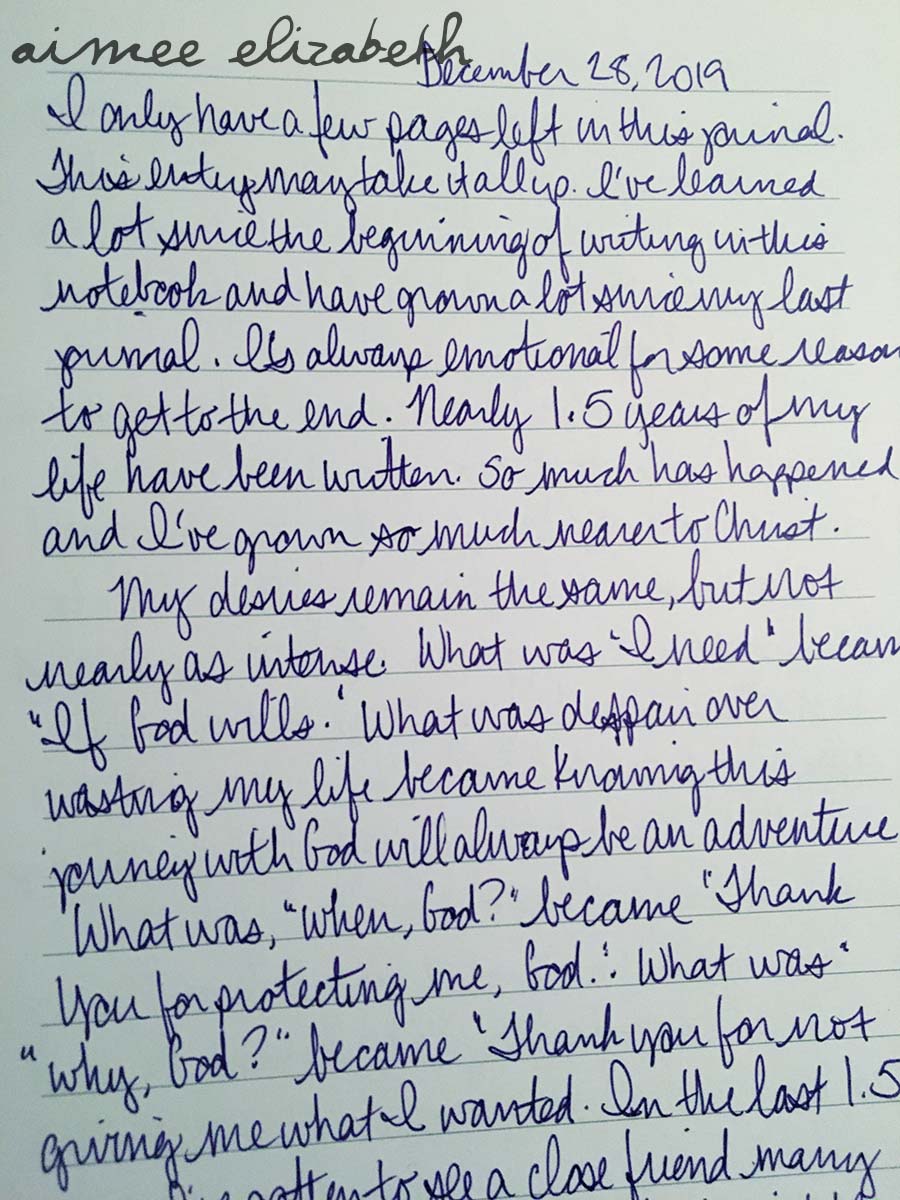 aimee elizabeth
December 28, 2019
I only have a few pages left in this journal.
This entry may take it all up. I've learned
a lot since the beginning of writing in this
notebook and have grown a lot since my last
journal. It's always emotional for some reason
to get to the end. Nearly 1.5 years of my
life have been written. So much has happened
and I've grown so much nearer to Christ.
My desires remain the same, but not
nearly as intense. What was "I need" becam
"If God wills." What was despair over
wasting my life became knowing this
journey with God will always be an adventure
What was, "When, God?" became "Thank
You for protecting me, God." What was
"why, God?" became "Thank you for not
giving me what I wanted. In the last 1.5
I've gotten to see a close friend many